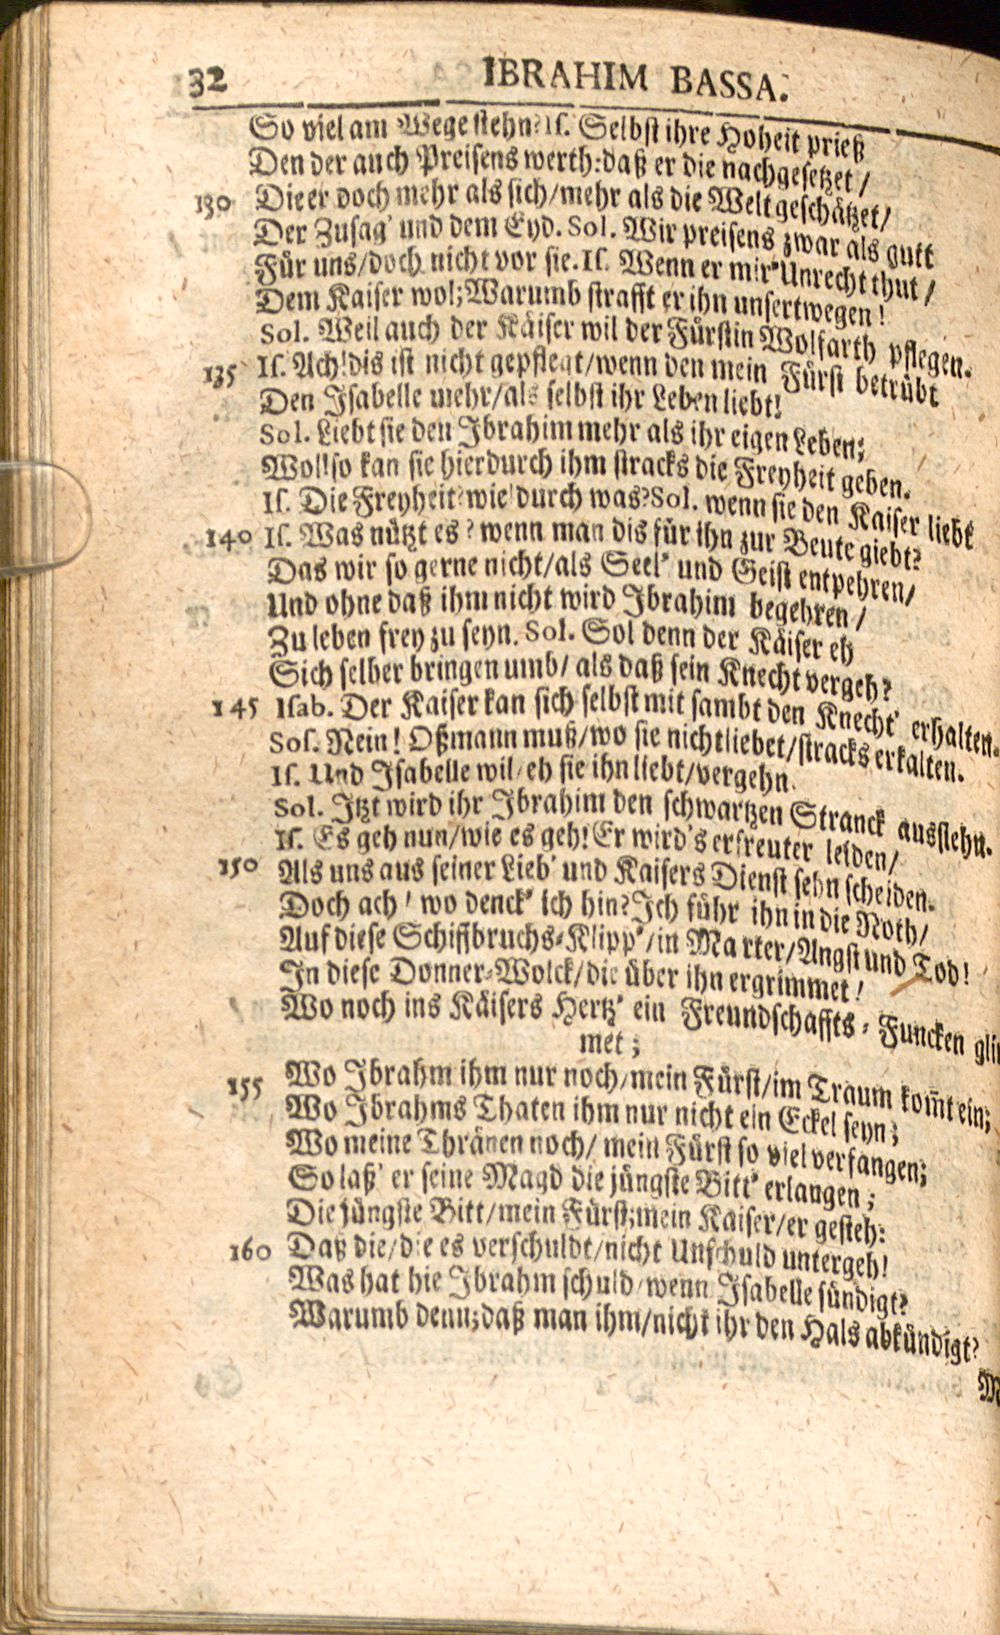 32 IBRAHIM BASSA.
So viel am Wege stehn? Is. Selbst ihre Hoheit prieß
Den der auch Preisens werth: daß er die nachgesetzet /
130 Die er doch mehr als sich / mehr als die Welt geschätzet /
Der Zusag' und dem Eyd. Sol. Wir preisens zwar als gutt
Für uns / doch nicht vor sie. Is. Wenn er mir Unrecht thut /
Dem Kaiser wol; Warumb strafft er ihn unsertwegen!
Sol. Weil auch der Käiser wil der Fürstin Wolfarth pflegen.
135 Is. Ach! dis ist nicht gepflegt / wenn den mein Fürst betrübt
Den Isabelle mehr / als selbst ihr Leben liebt!
Sol. Liebt sie den Ibrahim mehr als ihr eigen Leben;
Wol! so kan sie hierdurch ihm stracks die Freyheit geben.
Is. Die Freyheit? wie! durch was? Sol. wenn sie den Kaiser liebt
140 Is. Was nützt es? wenn man dis für ihn zur Beute giebt?
Das wir so gerne nicht / als Seel' und Geist entpehren /
Und ohne daß ihm nicht wird Ibrahim begehren /
Zu leben frey zu seyn. Sol. Sol denn der Käiser eh
Sich selber bringen umb / als daß sein Knecht vergeh?
145 Isab. Der Kaiser kan sich selbst mit sambt den Knecht' erhalten.
Sol. Nein! Oßmann muß / wo sie nicht liebet / stracks erkalten.
Is. Und Isabelle wil / eh sie ihn liebt / vergehn.
Sol. Itzt wird ihr Ibrahim den schwartzen Stranck ausstehn.
Is. Es geh nun / wie es geh! Er wird's erfreuter leiden /
150 Als uns aus seiner Lieb' und Kaisers Dienst sehn scheiden.
Doch ach! wo denck' ich hin? Ich führ ihn in die Noth /
Auf diese Schiffbruchs-Klipp' / in Marter / Angst und Tod!
In diese Donner-Wolck / die über ihn ergrimmet!
Wo noch ins Käisers Hertz' ein Freundschaffts-Funcken glim
met;
155 Wo Ibrahm ihm nur noch / mein Fürst / im Traum kom̃t ein;
Wo Ibrahms Thaten ihm nur nicht ein Eckel seyn;
Wo meine Thränen noch / mein Fürst so viel verfangen;
So laß' er seine Magd die jüngste Bitt' erlangen;
Die jüngste Bitt / mein Fürst; mein Kaiser / er gesteh:
160 Daß die / die es verschuldt / nicht Unschuld untergeh!
Was hat hie Ibrahm schuld / wenn Isabelle sündigt?
Warumb denn; daß man ihm / nicht ihr den Hals abkündigt?